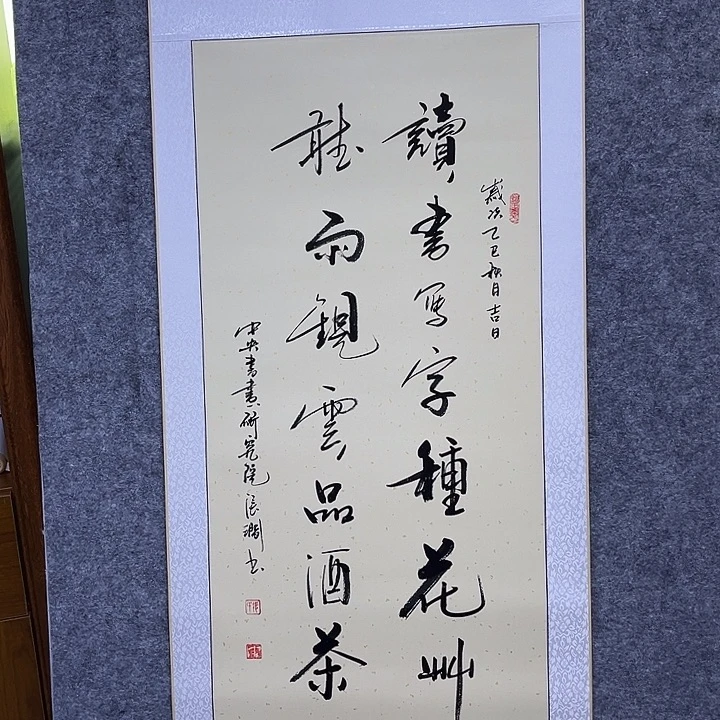 歲次乙巳秋月吉日
讀書写字種花艸
聽雨觀雲品酒茶
中央書畫研究院張潤书